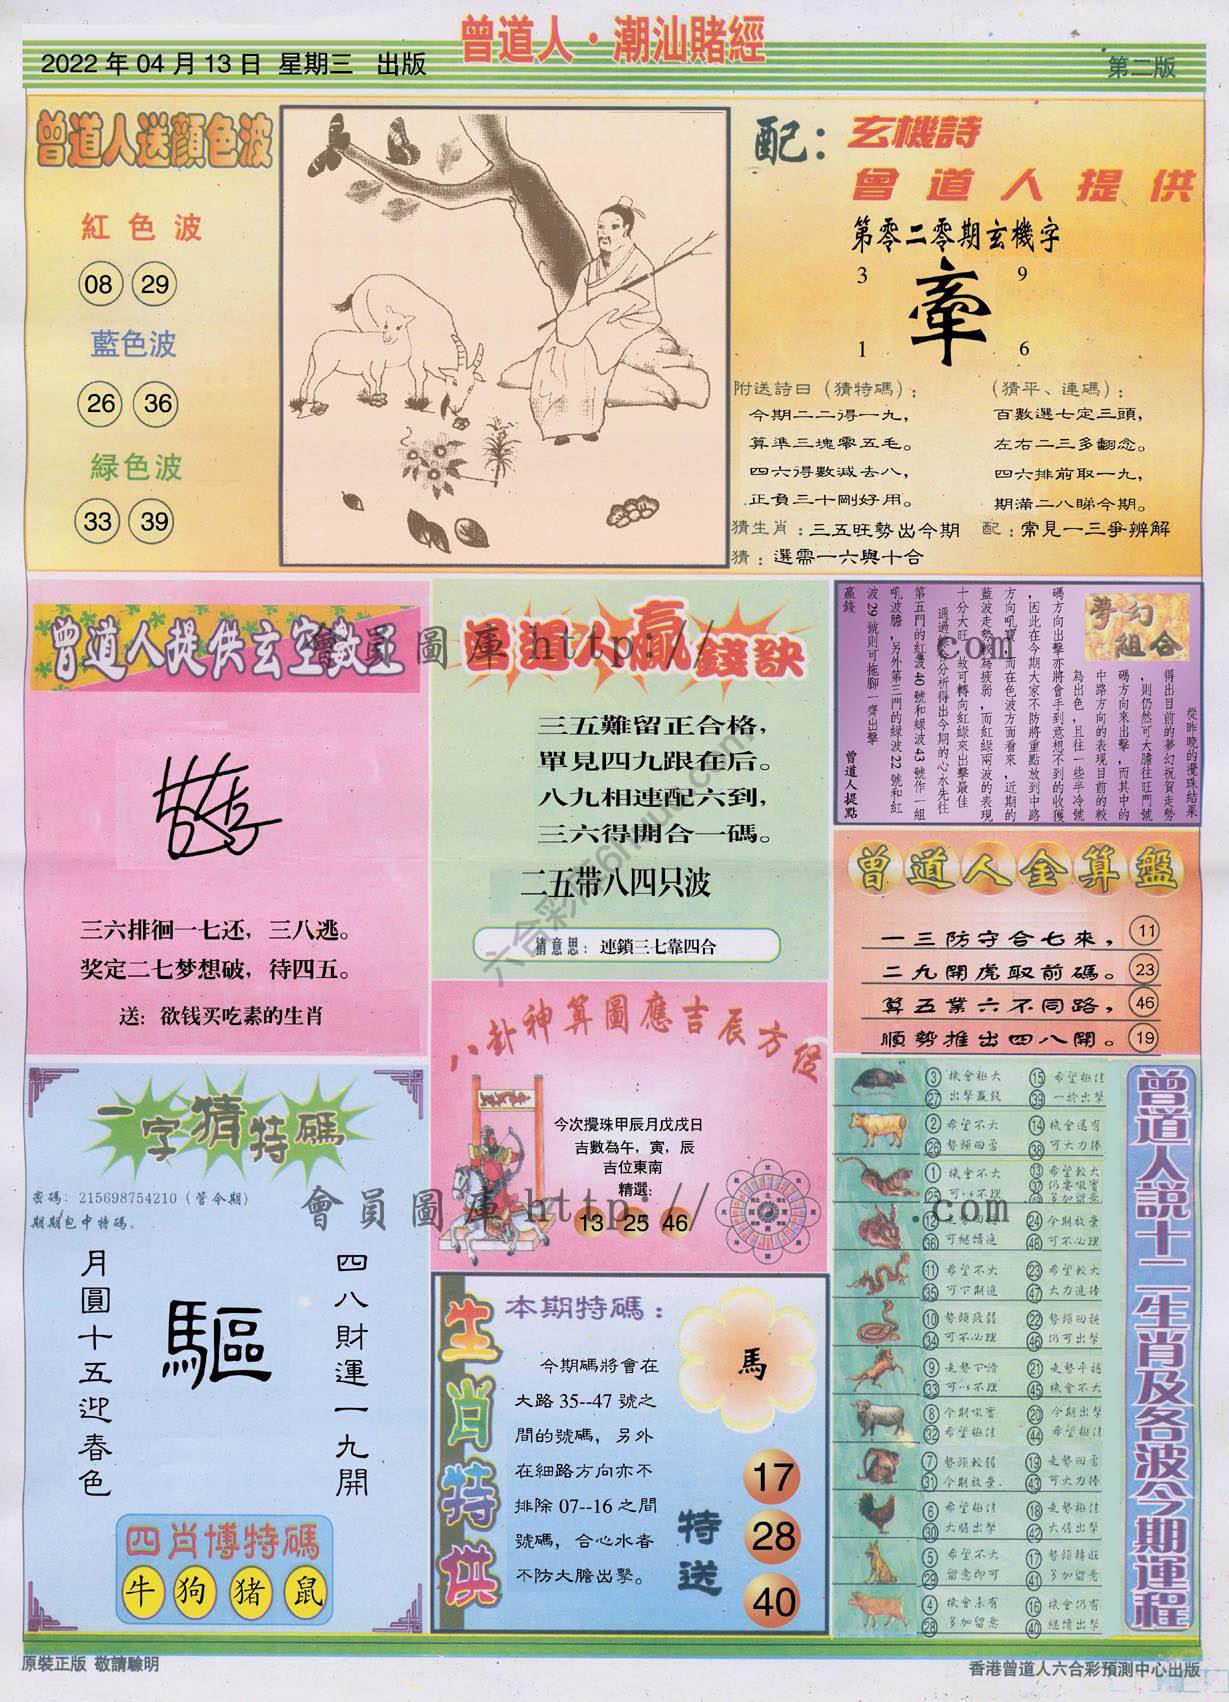 2022 年 04 月 13 日 星期三 出版
曾道人·潮汕賭經
第二版
曾道人送顏色波
紅色波
08 29
藍色波
26 36
緑色波
33 39
配：玄機詩
曾道人提供
第零二零期玄機字
3 9
牽
1 6
附送詩曰（猜特碼）：
今期二二得一九，
算準三塊零五毛。
四六得數減去八，
正負三十剛好用。
（猜平、連碼）：
百數選七定三頭，
左右二三多翻念。
四六排前取一九，
期滿二八睇今期。
猜生肖：三五旺勢出今期 配：常見一三爭辨解
猜：選需一六與十合
曾道人提供玄空數王
三六排徊一七还，三八逃。
奖定二七梦想破，待四五。
送：欲钱买吃素的生肖
曾道人贏錢訣
三五難留正合格，
單見四九跟在后。
八九相連配六到，
三六得開合一碼。
二五带八四只波
猜意思：連鎖三七靠四合
夢幻組合
從昨晚的攪珠結果
得出目前的夢幻祝賀走勢
，則仍然可大膽往旺門號
碼方向來出擊，而其中的
中路方向的表現目前的較
為出色，且往一些半冷號
碼方向出擊亦將會手到意想不到的收獲
，因此在今期大家不防將重點放到中路
方向吼寶，而在色波方面看來，近期的
藍波走勢較為疲弱，而紅緑兩波的表現
十分大旺，故可轉向紅緑來出擊最佳
通過綜合分析得出今期的心水先往
第五門的紅波40號和緑波43號作一組
吼波膽，另外第三門的緑波22號和紅
波29號則可拖腳一齊出擊
贏錢
曾道人提點
曾道人金算盤
一三防守合七來， 11
二九開虎取前碼。 23
算五業六不同路， 46
順勢推出四八開。 19
八卦神算圖應吉辰方位
今次攪珠甲辰月戊戌日
吉數為午，寅，辰
吉位東南
精選：
13 25 46
一字猜特碼
密碼：215698754210（管今期）
期期包中特碼。
四八財運一九開
驅
月圓十五迎春色
四肖博特碼
牛 狗 猪 鼠
生肖特供
本期特碼：
馬
今期碼將會在
大路 35--47 號之
間的號碼，另外
在細路方向亦不
排除 07--16 之間
號碼，合心水者
不防大膽出擊。
特送
17
28
40
曾道人説十二生肖及各波今期運程
3 機會極大 15 希望極佳
27 出擊贏錢 39 一於出擊
2 希望不大 14 機會還有
26 勢頭回勇 38 可大力捧
1 機會不大 13 希望較大
25 可以不理 37 仍要吸實
49 多加留意
12 走勢回穩 24 今期放棄
36 可繼續追 48 可不必理
11 希望不大 23 希望較大
35 可下期追 47 大力追捧
10 勢頭疲弱 22 勢頭回穩
34 可不必理 46 仍可出擊
9 走勢下滑 21 走勢平穩
33 可以不理 45 機會不大
8 今期吸實 20 今期出擊
32 希望極佳 44 希望極佳
7 勢頭較弱 19 走勢回勇
31 今期放棄. 43 可大力捧
6 希望極佳 18 走勢極佳
30 大膽出擊 42 大膽出擊
5 希望不大 17 勢頭轉旺
29 留意即可 41 多加留意
4 機會未有 16 機會仍有
28 多加留意 40 繼續出擊
會員圖庫 http:// .com
會員圖庫 http:// .com
原裝正版 敬請驗明
香港曾道人六合彩預測中心出版